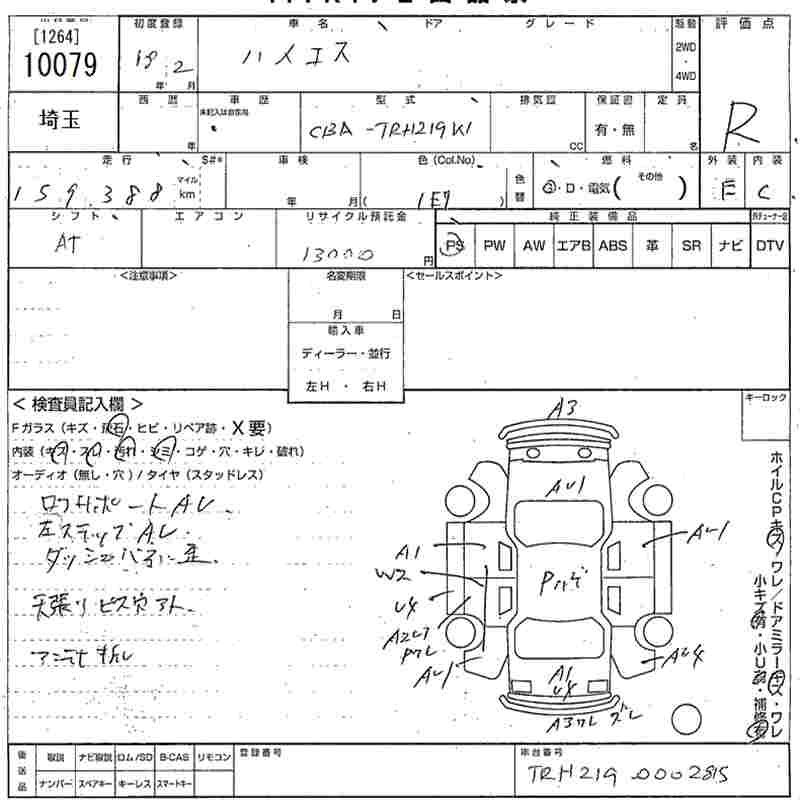 [1264]
10079
埼玉
初度登録
19.2
年 月
車名 ドア グレード
ハイエース
駆動
2WD
・
4WD
評価点
R
西暦
年
車歴
未記入は自家用
型式
CBA-TRH219W
排気量
CC
保証書
有・無
定員
名
走行
159,388
マイル
km
S#*
車検
年 月
色(Col.No)
(1E7)
色替
燃料
G・D・電気( その他 )
外装
E
内装
C
シフト
AT
エアコン
リサイクル預託金
13000
円
純正装備品
PS PW AW エアB ABS 革 SR ナビ
DTV
<注意事項>
名変期限
月 日
輸入車
ディーラー・並行
左H ・ 右H
<セールスポイント>
<検査員記入欄>
Fガラス (キズ・飛石・ヒビ・リペア跡・X要)
内装 (キズ・スレ・汚れ・シミ・コゲ・穴・キレ・破れ)
オーディオ (無し・穴) / タイヤ (スタッドレス)
左ステップAU
天張りビス穴アト
アンテナ折レ
キーロック
A3
AU1
A1
W2
U4
AU1
AU1
AU4
A1
U4
ホイルCPキズ/ワレ/ドアミラーキズ・ワレ
小キズ有・小U有・補修有
後送品
取説 ナビ取説 ロム/SD B-CAS リモコン
ナンバー スペアキー キーレス スマートキー
登録番号
車台番号
TRH219 0002815